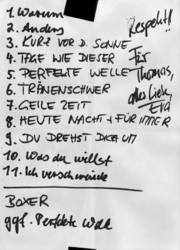 1. Warum
2. Anders
3. KURZ VOR D. SONNE
4. TAGE WIE DIESER
5. PERFEKTE WELLE
6. TRÄNENSCHWER
7. GEILE ZEIT
8. HEUTE NACHT + FÜR IMMER
9. DU DREHST DICH UM
10. Was du willst
11. Ich verschwinde
BOXER
ggf. Perfekte Welle
Respekt!!
Für
Thomas,
alles Liebe,
Eva